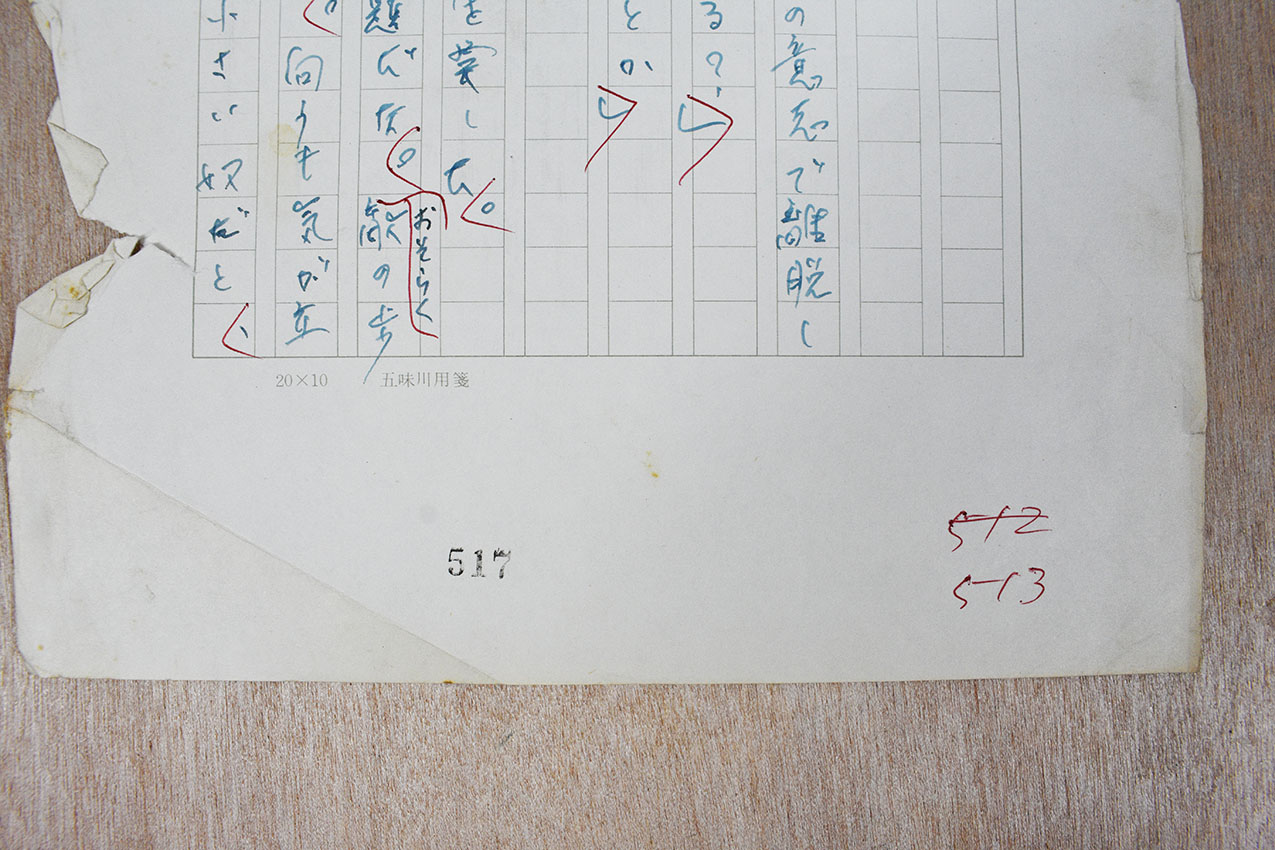 の意志で離脱し
る？」
とか」
した。
題だな。おそらく敵の歩
。向うも気が立
小さい奴だと、
20×10　五味川用箋
517
512
513